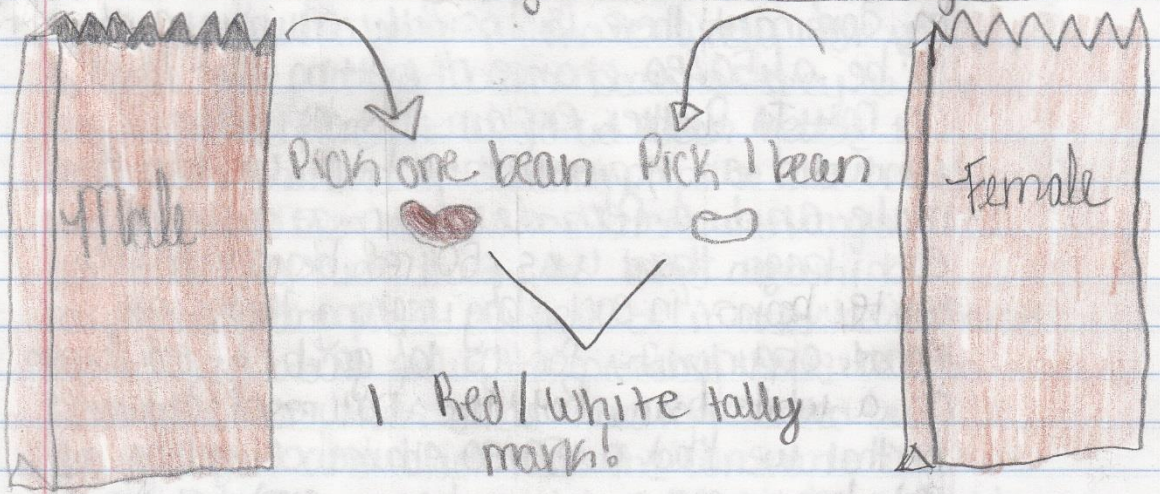 Pick one bean
Pick 1 bean
Male
Female
1 Red/White tally
mark!